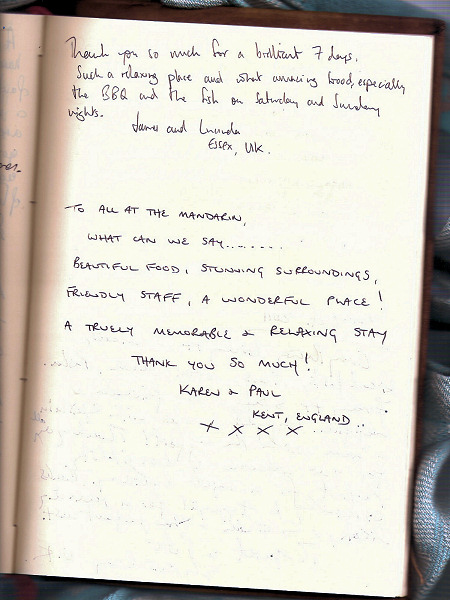 Thank you so much for a brilliant 7 days.
Such a relaxing place and what amazing food, especially
the BBQ and the fish on Saturday and Sunday
nights.
James and Lucinda
Essex, UK.
TO ALL AT THE MANDARIN,
WHAT CAN WE SAY........
BEAUTIFUL FOOD, STUNNING SURROUNDINGS,
FRIENDLY STAFF, A WONDERFUL PLACE!
A TRUELY MEMORABLE & RELAXING STAY
THANK YOU SO MUCH!
KAREN & PAUL
KENT, ENGLAND..
x x x x